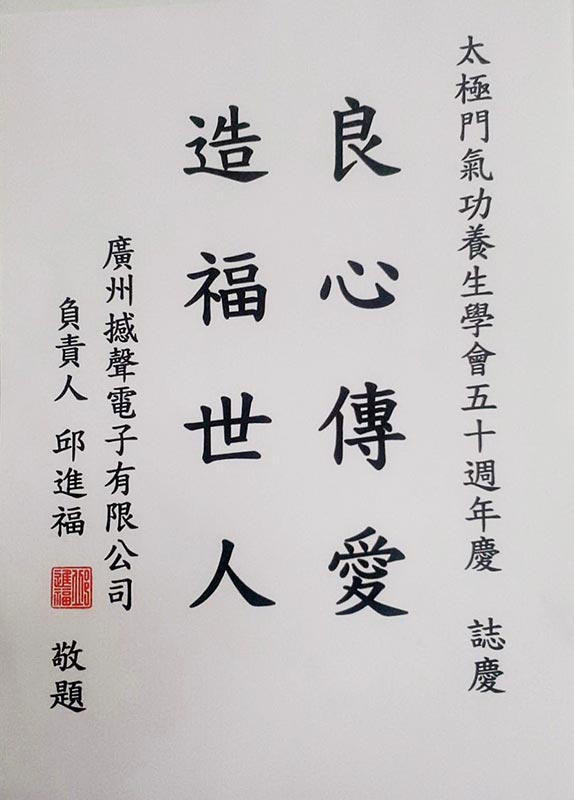 太極門氣功養生學會五十週年慶 誌慶
良心傳愛
造福世人
廣州撼聲電子有限公司
負責人 邱進福 邱進福 敬題